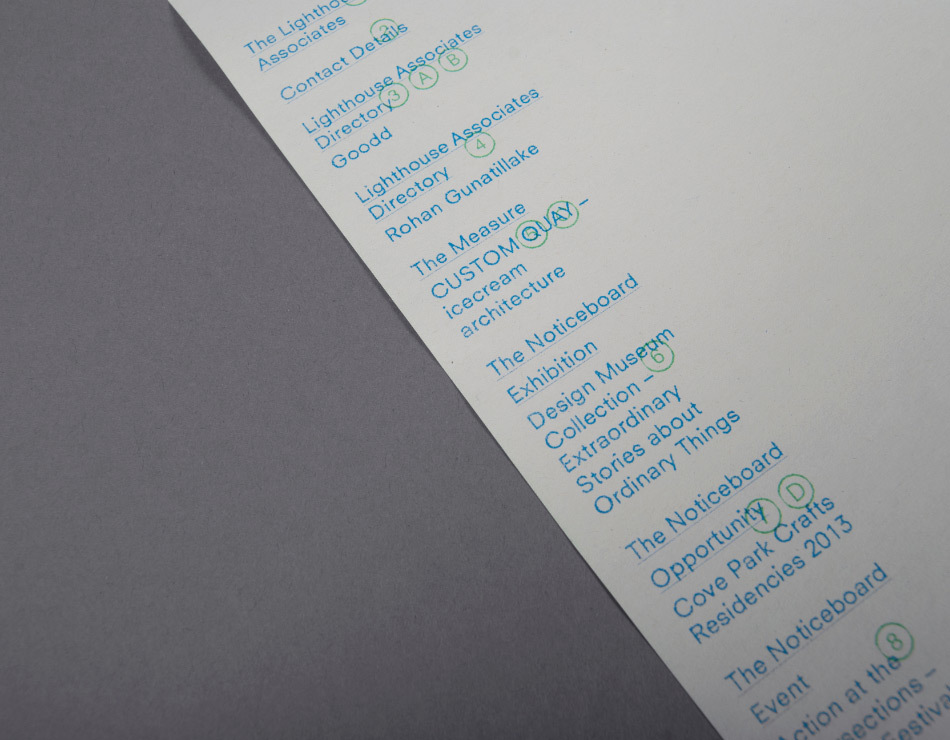 The
Associates
Contact Details
2
Lighthouse Associates
Directory
3 A B
Goodd
Lighthouse Associates
Directory
4
Rohan Gunatillake
The Measure
CUSTOM QUAY –
icecream
architecture
The Noticeboard
Exhibition
6
Design Museum
Collection –
Extraordinary
Stories about
Ordinary Things
The Noticeboard
Opportunity
7 D
Cove Park Crafts
Residencies 2013
The Noticeboard
Event
8
Action at the